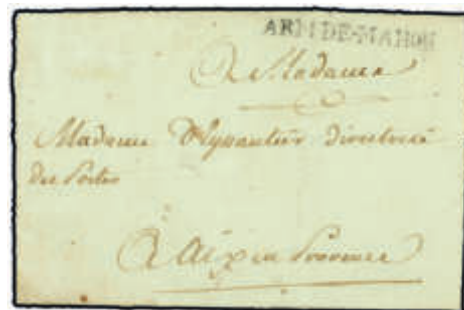 ARM.DE-MAHON
A Madame
Madame directrice
des Postes
A Aix en Provence